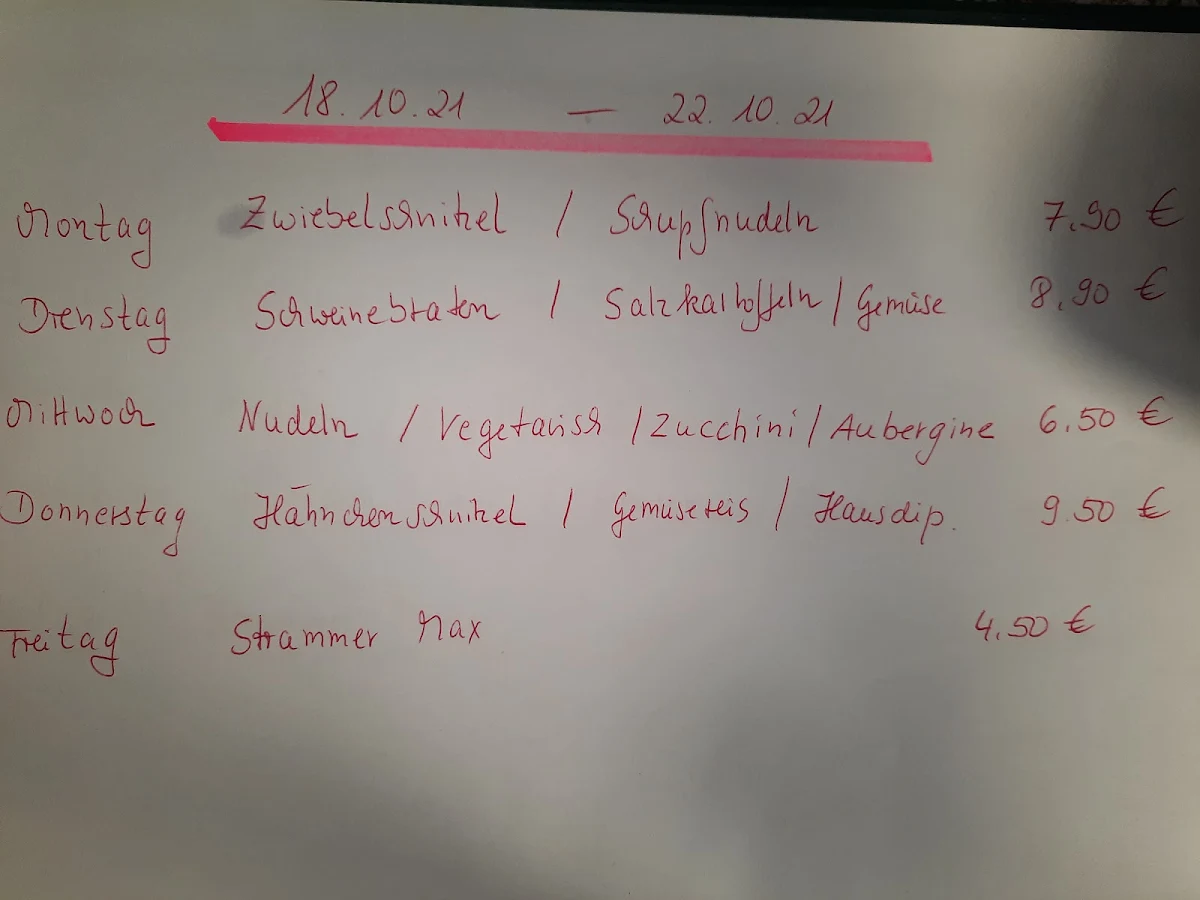 18.10.21 — 22.10.21
Montag Zwiebelschnitzel / Schupfnudeln 7.90 €
Dienstag Schweinebraten / Salzkartoffeln / Gemüse 8.90 €
Mittwoch Nudeln / Vegetarisch / Zucchini / Aubergine 6.50 €
Donnerstag Hähnchenschnitzel / Gemüsereis / Hausdip. 9.50 €
Freitag Strammer Max 4.50 €